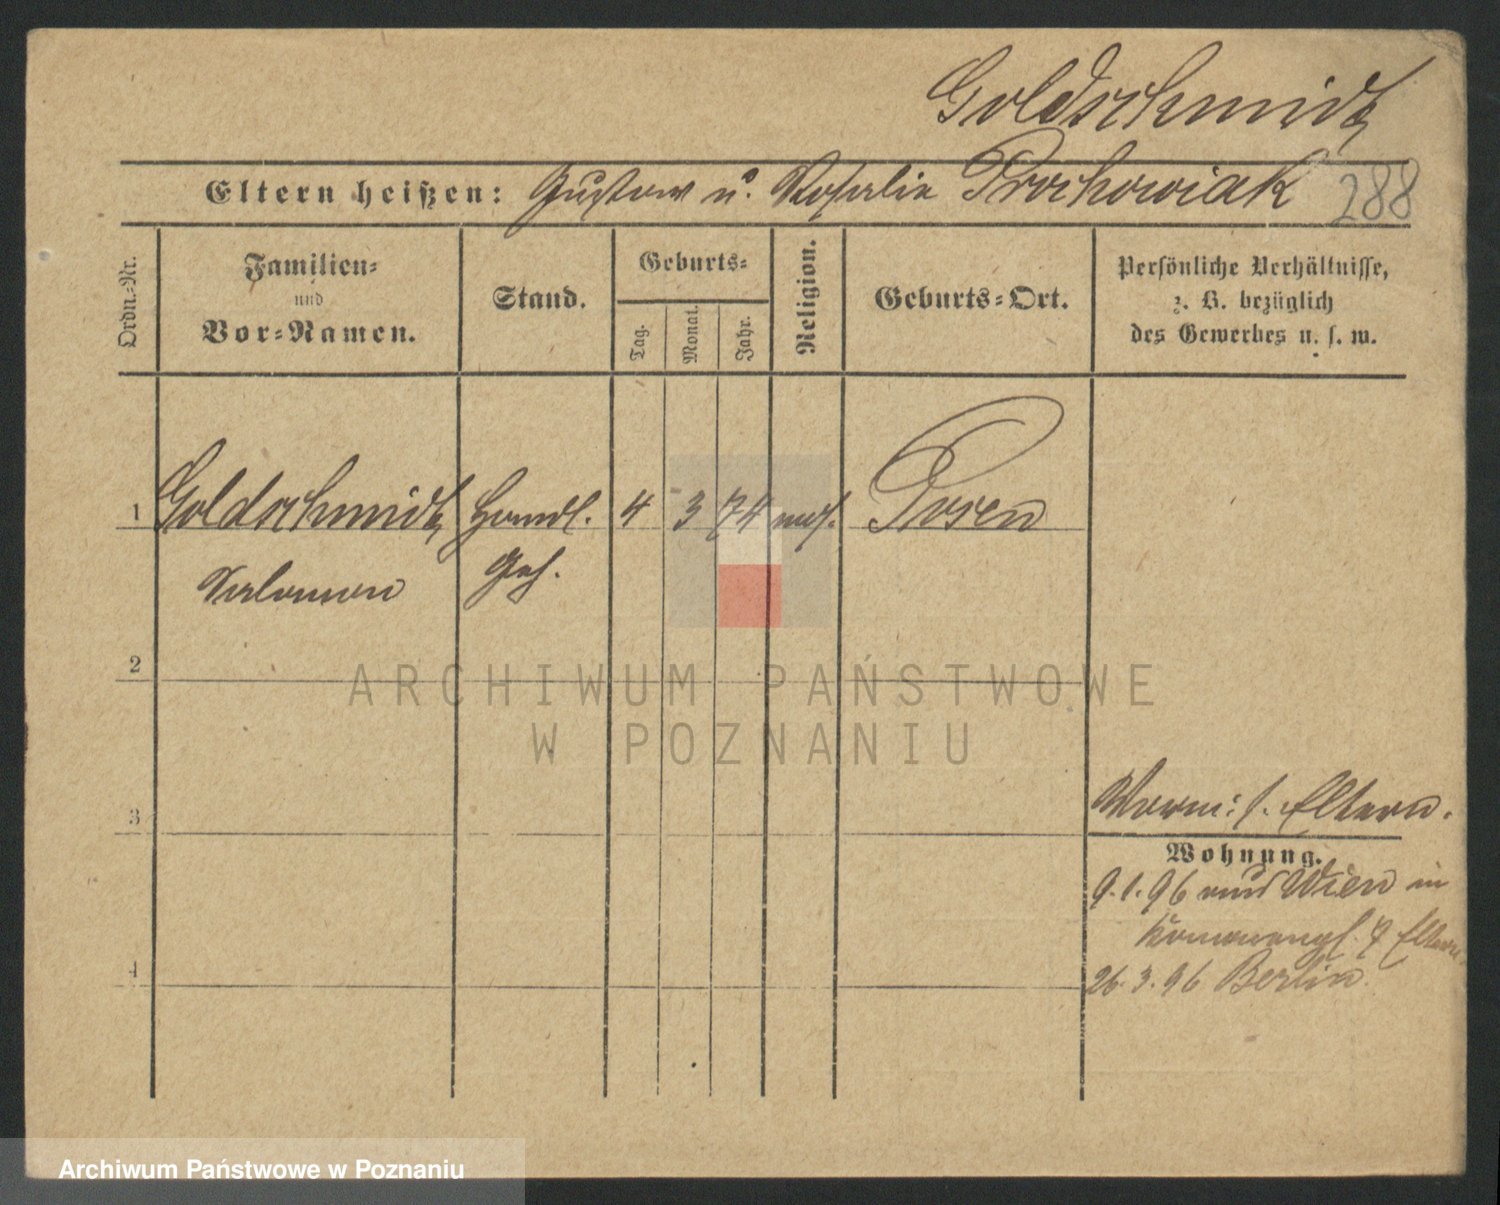 Goldschmidt
Eltern heißen: Gustav u. Rosalie Prochowiak 288
Ordn.-Nr.
Familien-
und
Vor-Namen.
Stand.
Geburts-
Tag.
Monat.
Jahr.
Religion.
Geburts-Ort.
Persönliche Verhältnisse,
z. B. bezüglich
des Gewerbes u. s. w.
1 Goldschmidt Handl. 4 3 74 mos. Posen
Salomon Geh.
2
ARCHIWUM PAŃSTWOWE
W POZNANIU
3
Vorm: s. Eltern.
Wohnung.
9.1.96 aus Wien in
Eltern
4
26.3.96 Berlin.
Archiwum Państwowe w Poznaniu